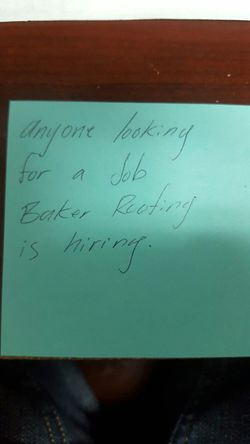 anyone looking
for a Job
Baker Roofing
is hiring.